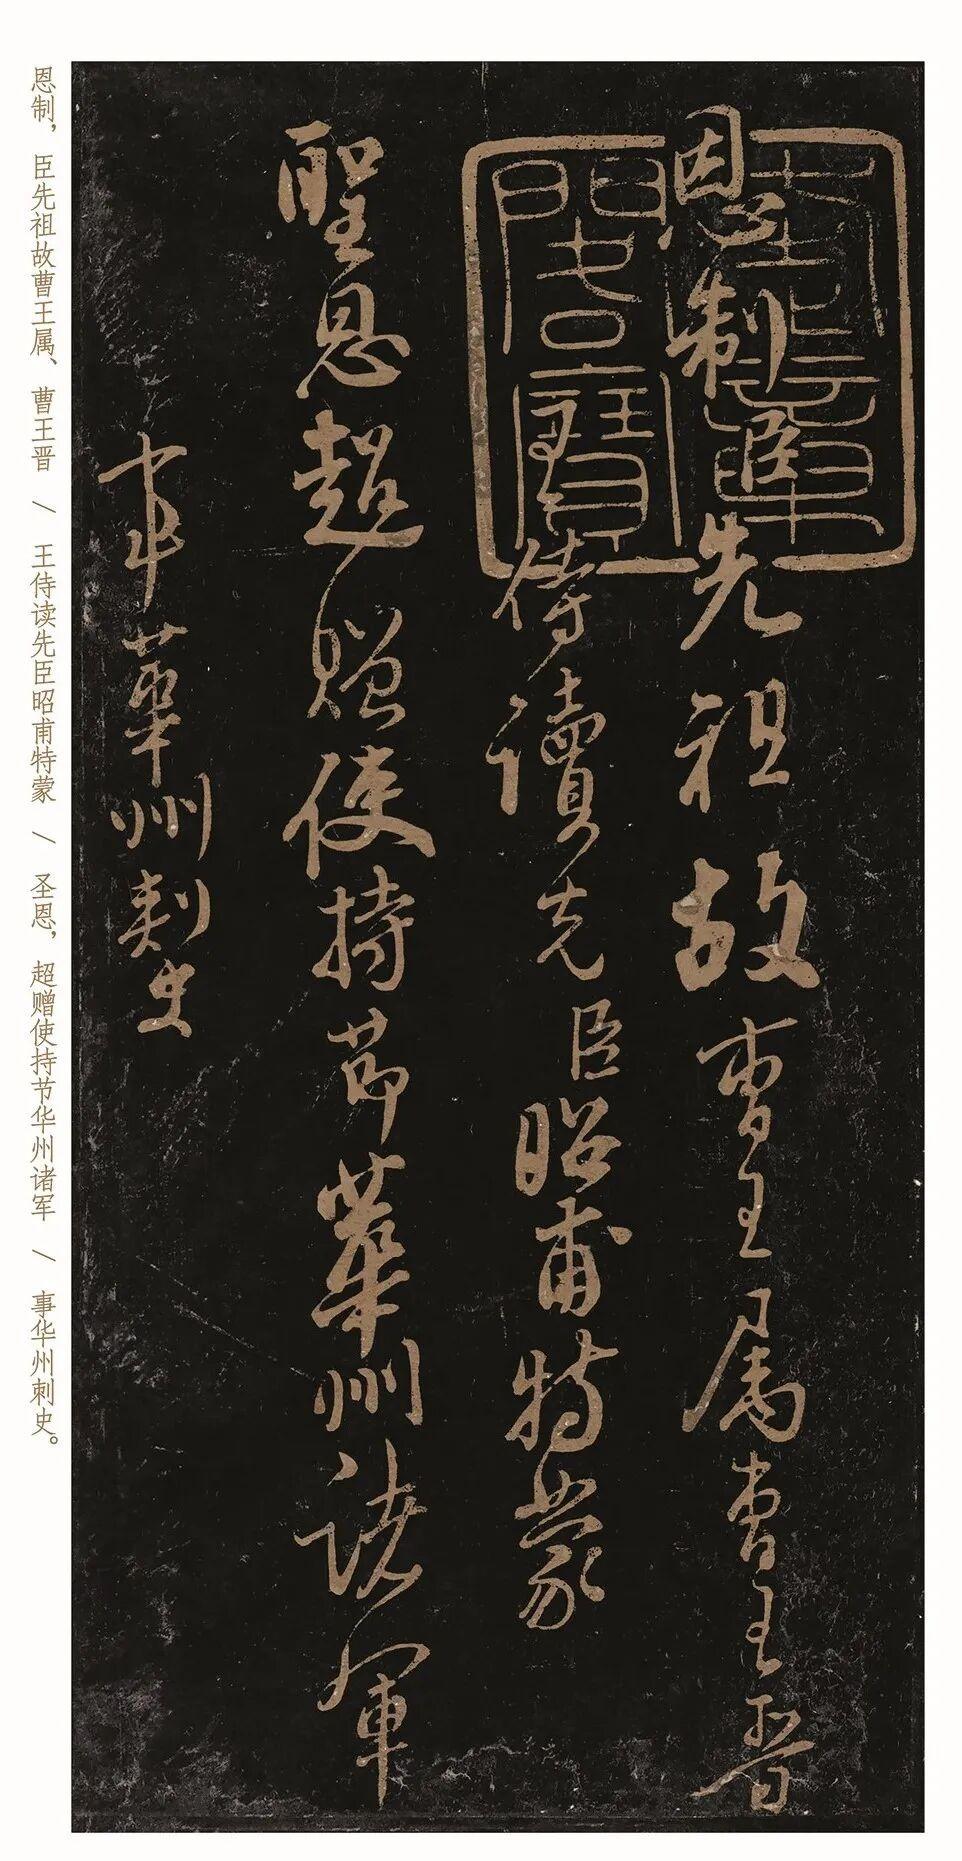 恩制臣先祖故曹王属曹王晋
王侍讀先臣昭甫特蒙
聖恩超贈使持節華州諸軍
事華州刺史
恩制，臣先祖故曹王属、曹王晋 / 王侍读先臣昭甫特蒙 / 圣恩，超赠使持节华州诸军 / 事华州刺史。